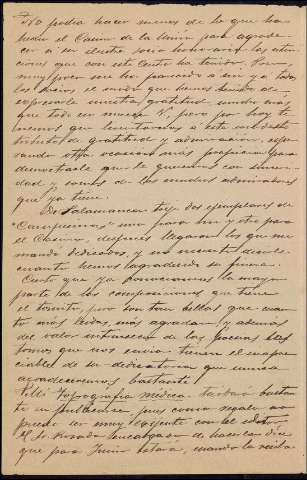 No podía hacer menos de lo que ha
hecho el Casino de la Unión para agrade-
cer a su ilustre socio honorario las aten-
ciones que con este Centro ha tenido. Pero
muy poco me ha parecido a mi y a todos
los socios el modo que hemos tenido de
expresarle nuestra gratitud, siendo más
que todo un pero por hoy te-
nemos que limitarnos a este modesto
tributo de gratitud y admiración, espe-
rando otra ocasión más propicia para
demostrarle que le queremos con sinceri-
dad y somos de los muchos admiradores
que ya tiene.
De Salamanca traje dos ejemplares de
"Campesinas" uno para mi y otro para
el Casino, después llegaron los que me
mandó dedicados, y no necesito decirle
cuanto hemos agradecido su fineza.
Cierto que ya conocíamos la mayor
parte de las composiciones que tiene
el tomito, pero son tan bellas que cuan-
to más leidas, más agradan y además
del valor intrínseco de las poesías los
tomos que nos envía tienen el inapre-
ciable de su dedicatoria que nunca
agradeceremos bastante.
Mi Topografía médica tardará bastan-
te en publicarse, pues como regalo no
puedo ser muy exigente con el editor.
El Sr. Rosado encargado de hacerla dice
que para Junio estará, cuando la reciba